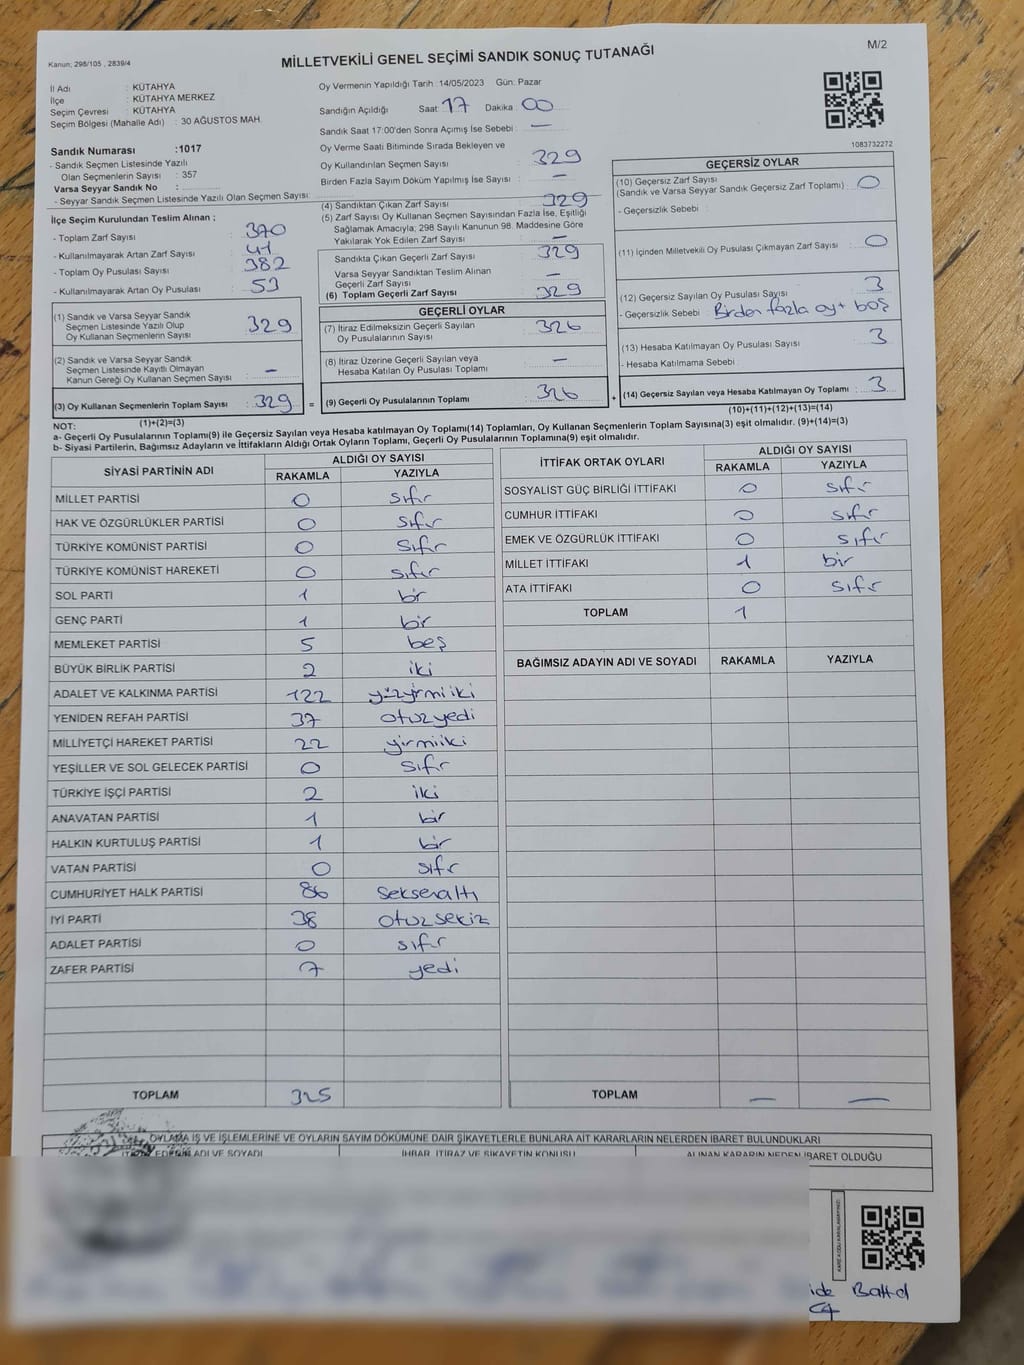 Kanun; 298/105 , 2839/4
MİLLETVEKİLİ GENEL SEÇİMİ SANDIK SONUÇ TUTANAĞI
M/2
İl Adı : KÜTAHYA
İlçe : KÜTAHYA MERKEZ
Seçim Çevresi : KÜTAHYA
Seçim Bölgesi (Mahalle Adı) : 30 AĞUSTOS MAH.
Sandık Numarası :1017
- Sandık Seçmen Listesinde Yazılı
Olan Seçmenlerin Sayısı : 357
Varsa Seyyar Sandık No :
- Seyyar Sandık Seçmen Listesinde Yazılı Olan Seçmen Sayısı:
İlçe Seçim Kurulundan Teslim Alınan ;
- Toplam Zarf Sayısı : 370
- Kullanılmayarak Artan Zarf Sayısı : 41
- Toplam Oy Pusulası Sayısı : 382
- Kullanılmayarak Artan Oy Pusulası : 53
(1) Sandık ve Varsa Seyyar Sandık
Seçmen Listesinde Yazılı Olup
Oy Kullanan Seçmenlerin Sayısı : 329
(2) Sandık ve Varsa Seyyar Sandık
Seçmen Listesinde Kayıtlı Olmayan
Kanun Gereği Oy Kullanan Seçmen Sayısı : -
(3) Oy Kullanan Seçmenlerin Toplam Sayısı : 329
(1)+(2)=(3)
Oy Vermenin Yapıldığı Tarih :14/05/2023 Gün: Pazar
Sandığın Açıldığı Saat 17 Dakika 00
Sandık Saat 17:00'den Sonra Açımış İse Sebebi : -
Oy Verme Saati Bitiminde Sırada Bekleyen ve
Oy Kullandırılan Seçmen Sayısı : 329
Birden Fazla Sayım Döküm Yapılmış İse Sayısı : -
(4) Sandıktan Çıkan Zarf Sayısı : 329
(5) Zarf Sayısı Oy Kullanan Seçmen Sayısından Fazla İse, Eşitliği
Sağlamak Amacıyla; 298 Sayılı Kanunun 98. Maddesine Göre
Yakılarak Yok Edilen Zarf Sayısı : -
Sandıkta Çıkan Geçerli Zarf Sayısı : 329
Varsa Seyyar Sandıktan Teslim Alınan
Geçerli Zarf Sayısı : -
(6) Toplam Geçerli Zarf Sayısı : 329
GEÇERLİ OYLAR
(7) İtiraz Edilmeksizin Geçerli Sayılan
Oy Pusulalarının Sayısı : 326
(8) İtiraz Üzerine Geçerli Sayılan veya
Hesaba Katılan Oy Pusulası Toplamı : -
= (9) Geçerli Oy Pusulalarının Toplamı : 326
1083732272
GEÇERSİZ OYLAR
(10) Geçersiz Zarf Sayısı : 0
(Sandık ve Varsa Seyyar Sandık Geçersiz Zarf Toplamı)
- Geçersizlik Sebebi :
(11) İçinden Milletvekili Oy Pusulası Çıkmayan Zarf Sayısı : 0
(12) Geçersiz Sayılan Oy Pusulası Sayısı : 3
- Geçersizlik Sebebi : Birden fazla oy + boş
(13) Hesaba Katılmayan Oy Pusulası Sayısı : 3
- Hesaba Katılmama Sebebi :
+ (14) Geçersiz Sayılan veya Hesaba Katılmayan Oy Toplamı : 3
(10)+(11)+(12)+(13)=(14)
NOT:
a- Geçerli Oy Pusulalarının Toplamı(9) ile Geçersiz Sayılan veya Hesaba katılmayan Oy Toplamı(14) Toplamları, Oy Kullanan Seçmenlerin Toplam Sayısına(3) eşit olmalıdır. (9)+(14)=(3)
b- Siyasi Partilerin, Bağımsız Adayların ve İttifakların Aldığı Ortak Oyların Toplamı, Geçerli Oy Pusulalarının Toplamına(9) eşit olmalıdır.
SİYASİ PARTİNİN ADI ALDIĞI OY SAYISI
RAKAMLA YAZIYLA
MİLLET PARTİSİ 0 sıfır
HAK VE ÖZGÜRLÜKLER PARTİSİ 0 sıfır
TÜRKİYE KOMÜNİST PARTİSİ 0 sıfır
TÜRKİYE KOMÜNİST HAREKETİ 0 sıfır
SOL PARTİ 1 bir
GENÇ PARTİ 1 bir
MEMLEKET PARTİSİ 5 beş
BÜYÜK BİRLİK PARTİSİ 2 iki
ADALET VE KALKINMA PARTİSİ 122 yüzyirmiiki
YENİDEN REFAH PARTİSİ 37 otuzyedi
MİLLİYETÇİ HAREKET PARTİSİ 22 yirmiiki
YEŞİLLER VE SOL GELECEK PARTİSİ 0 sıfır
TÜRKİYE İŞÇİ PARTİSİ 2 iki
ANAVATAN PARTİSİ 1 bir
HALKIN KURTULUŞ PARTİSİ 1 bir
VATAN PARTİSİ 0 sıfır
CUMHURİYET HALK PARTİSİ 86 seksenaltı
İYİ PARTİ 38 otuzsekiz
ADALET PARTİSİ 0 sıfır
ZAFER PARTİSİ 7 yedi
TOPLAM 325
İTTİFAK ORTAK OYLARI ALDIĞI OY SAYISI
RAKAMLA YAZIYLA
SOSYALİST GÜÇ BİRLİĞİ İTTİFAKI 0 sıfır
CUMHUR İTTİFAKI 0 sıfır
EMEK VE ÖZGÜRLÜK İTTİFAKI 0 sıfır
MİLLET İTTİFAKI 1 bir
ATA İTTİFAKI 0 sıfır
TOPLAM 1
BAĞIMSIZ ADAYIN ADI VE SOYADI RAKAMLA YAZIYLA
TOPLAM - -
OYLAMA İŞ VE İŞLEMLERİNE VE OYLARIN SAYIM DÖKÜMÜNE DAİR ŞİKAYETLERLE BUNLARA AİT KARARLARIN NELERDEN İBARET BULUNDUKLARI
ADI VE SOYADI İHBAR, İTİRAZ VE ŞİKAYETİN KONUSU ALINAN KARARIN NEDEN İBARET OLDUĞU